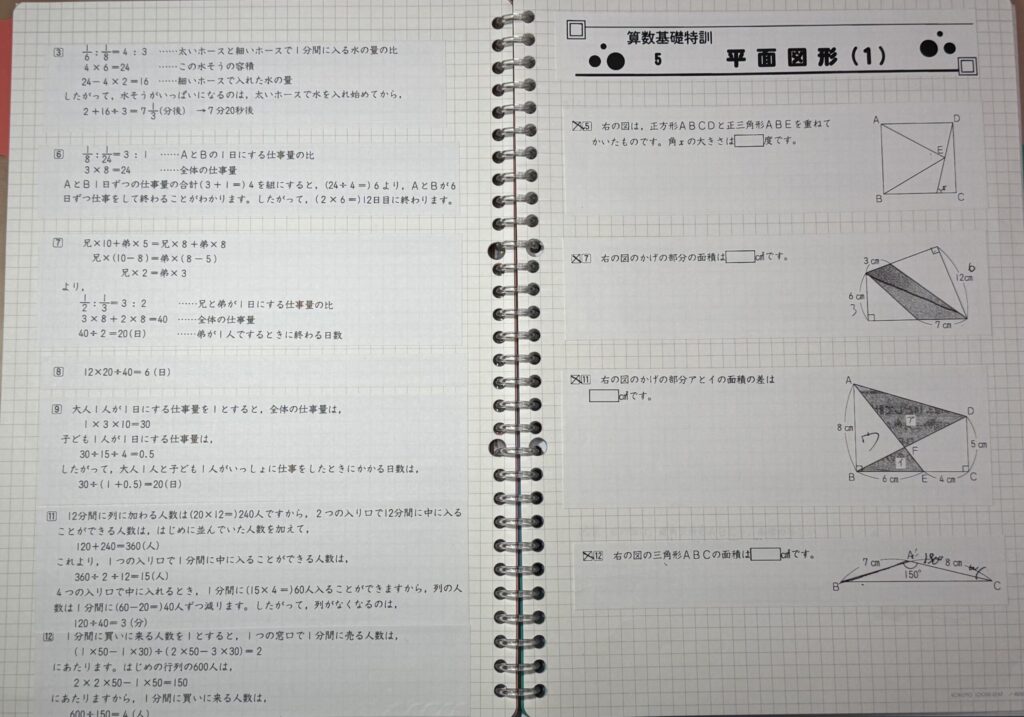 ③ 1/6：1/8＝4：3 ……太いホースと細いホースで1分間に入る水の量の比
4×6＝24 ……この水そうの容積
24－4×2＝16 ……細いホースで入れた水の量
したがって，水そうがいっぱいになるのは，太いホースで水を入れ始めてから，
2＋16÷3＝7 1/3(分後) →7分20秒後
⑥ 1/8：1/24＝3：1 ……AとBの1日にする仕事量の比
3×8＝24 ……全体の仕事量
AとB1日ずつの仕事量の合計(3＋1＝)4を組にすると，(24÷4＝)6より，AとBが6
日ずつ仕事をして終わることがわかります。したがって，(2×6＝)12日目に終わります。
⑦ 兄×10＋弟×5＝兄×8＋弟×8
兄×(10－8)＝弟×(8－5)
兄×2＝弟×3
より，
1/2：1/3＝3：2 ……兄と弟が1日にする仕事量の比
3×8＋2×8＝40 ……全体の仕事量
40÷2＝20(日) ……弟が1人でするときに終わる日数
⑧ 12×20÷40＝6(日)
⑨ 大人1人が1日にする仕事量を1とすると，全体の仕事量は，
1×3×10＝30
子ども1人が1日にする仕事量は，
30÷15÷4＝0.5
したがって，大人1人と子ども1人がいっしょに仕事をしたときにかかる日数は，
30÷(1＋0.5)＝20(日)
⑪ 12分間に列に加わる人数は(20×12＝)240人ですから，2つの入り口で12分間に中に入る
ことができる人数は，はじめに並んでいた人数を加えて，
120＋240＝360(人)
これより，1つの入り口で1分間に中に入ることができる人数は，
360÷2÷12＝15(人)
4つの入り口で中に入れるとき，1分間に(15×4＝)60人入ることができますから，列の人
数は1分間に(60－20＝)40人ずつ減ります。したがって，列がなくなるのは，
120÷40＝3(分)
⑫ 1分間に買いに来る人数を1とすると，1つの窓口で1分間に売る人数は，
(1×50－1×30)÷(2×50－3×30)＝2
にあたります。はじめの行列の600人は，
2×2×50－1×50＝150
にあたりますから，1分間に買いに来る人数は，
600÷150＝4(人)
算数基礎特訓
5 平面図形(1)
5 右の図は，正方形ABCDと正三角形ABEを重ねて
かいたものです。角xの大きさは□度です。
A D
E
x
B C
7 右の図のかげの部分の面積は□cm²です。
3cm
6
12cm
6cm
3
7cm
11 右の図のかげの部分アとイの面積の差は
□cm²です。
A
D
ア
8cm
ウ
F
5cm
イ
B E C
6cm 4cm
12 右の図の三角形ABCの面積は□cm²です。
7cm A 8cm
150°
B C